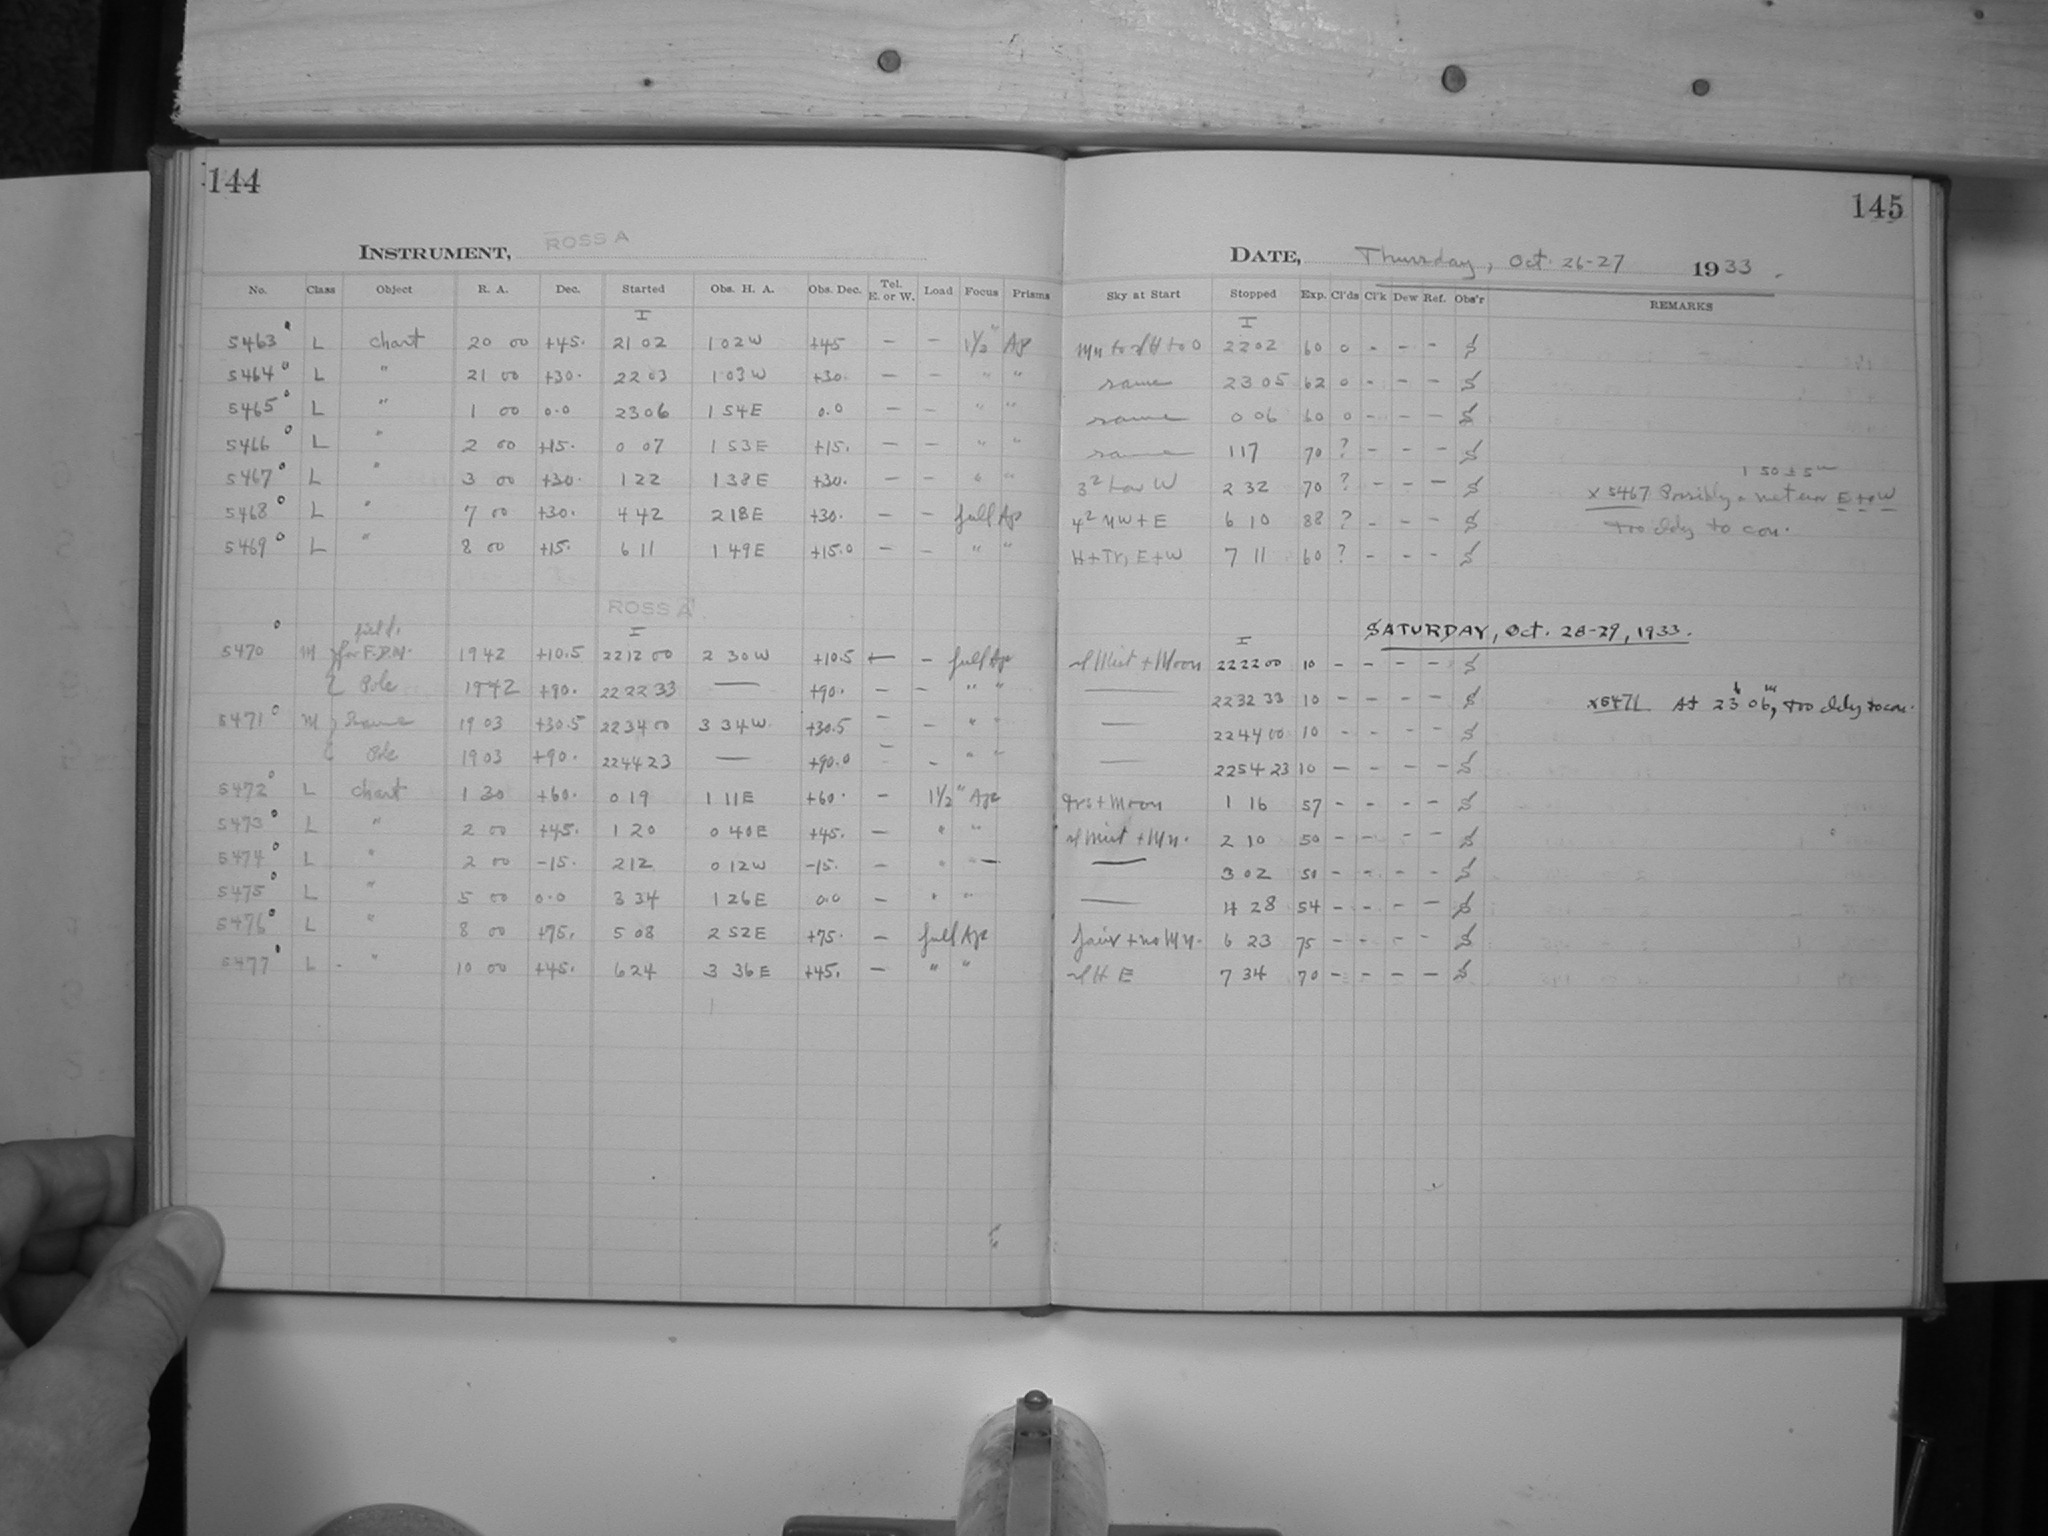 144
145
INSTRUMENT, ROSS A
DATE, Thursday, Oct. 26-27 1933.
No. Class Object R. A. Dec. Started Obs. H. A. Obs. Dec. Tel. E. or W. Load Focus Prisms Sky at Start Stopped Exp. Cl'ds Cl'k Dew Ref. Obs'r REMARKS
I I
5463 L chart 20 00 +45. 21 02 1 02 W +45 — — 1½" Ap Mn to sl H to 0 22 02 60 0 - - - S
5464 L " 21 00 +30. 22 03 1 03 W +30. — — " " same 23 05 62 0 - - - S
5465 L " 1 00 0.0 23 06 1 54 E 0.0 — — " " same 0 06 60 0 - - - S
5466 L " 2 00 +15. 0 07 1 53 E +15. — — " " same 1 17 70 ? - - - S
1 50 ± 5m
5467 L " 3 00 +30. 1 22 1 38 E +30. — — " " 3² Low W 2 32 70 ? - - - S x 5467 Possibly a meteor E to W
5468 L " 7 00 +30. 4 42 2 18 E +30. — — full Ap 4² NW + E 6 10 88 ? - - - S Too cldy to con.
5469 L " 8 00 +15. 6 11 1 49 E +15.0 — — " " H + Tr, E + W 7 11 60 ? - - - S
ROSS A
SATURDAY, Oct. 28-29, 1933.
field,
I I
5470 M for F.D.M. 19 42 +10.5 22 12 00 2 30 W +10.5 — — full Ap sl Mist + Moon 22 22 00 10 - - - - S
Pole 19 42 +90. 22 22 33 — +90. — — " " — 22 32 33 10 - - - - S x5471 At 23h 06m, too cldy to con.
5471 M Same 19 03 +30.5 22 34 00 3 34 W. +30.5 — — " " — 22 44 00 10 - - - - S
Pole 19 03 +90. 22 44 23 — +90.0 — — " " — 22 54 23 10 - - - - S
5472 L chart 1 30 +60. 0 19 1 11 E +60. — 1½" Ap trs + Moon 1 16 57 - - - - S
5473 L " 2 00 +45. 1 20 0 40 E +45. — " " sl Mist + Mn. 2 10 50 - - - - S
5474 L " 2 00 -15. 2 12 0 12 W -15. — " " — — 3 02 50 - - - - S
5475 L " 5 00 0.0 3 34 1 26 E 0.0 — " " — 4 28 54 - - - - S
5476 L " 8 00 +75. 5 08 2 52 E +75. — full Ap fair + no Mn. 6 23 75 - - - - S
5477 L " 10 00 +45. 6 24 3 36 E +45. — " " sl H E 7 34 70 - - - - S